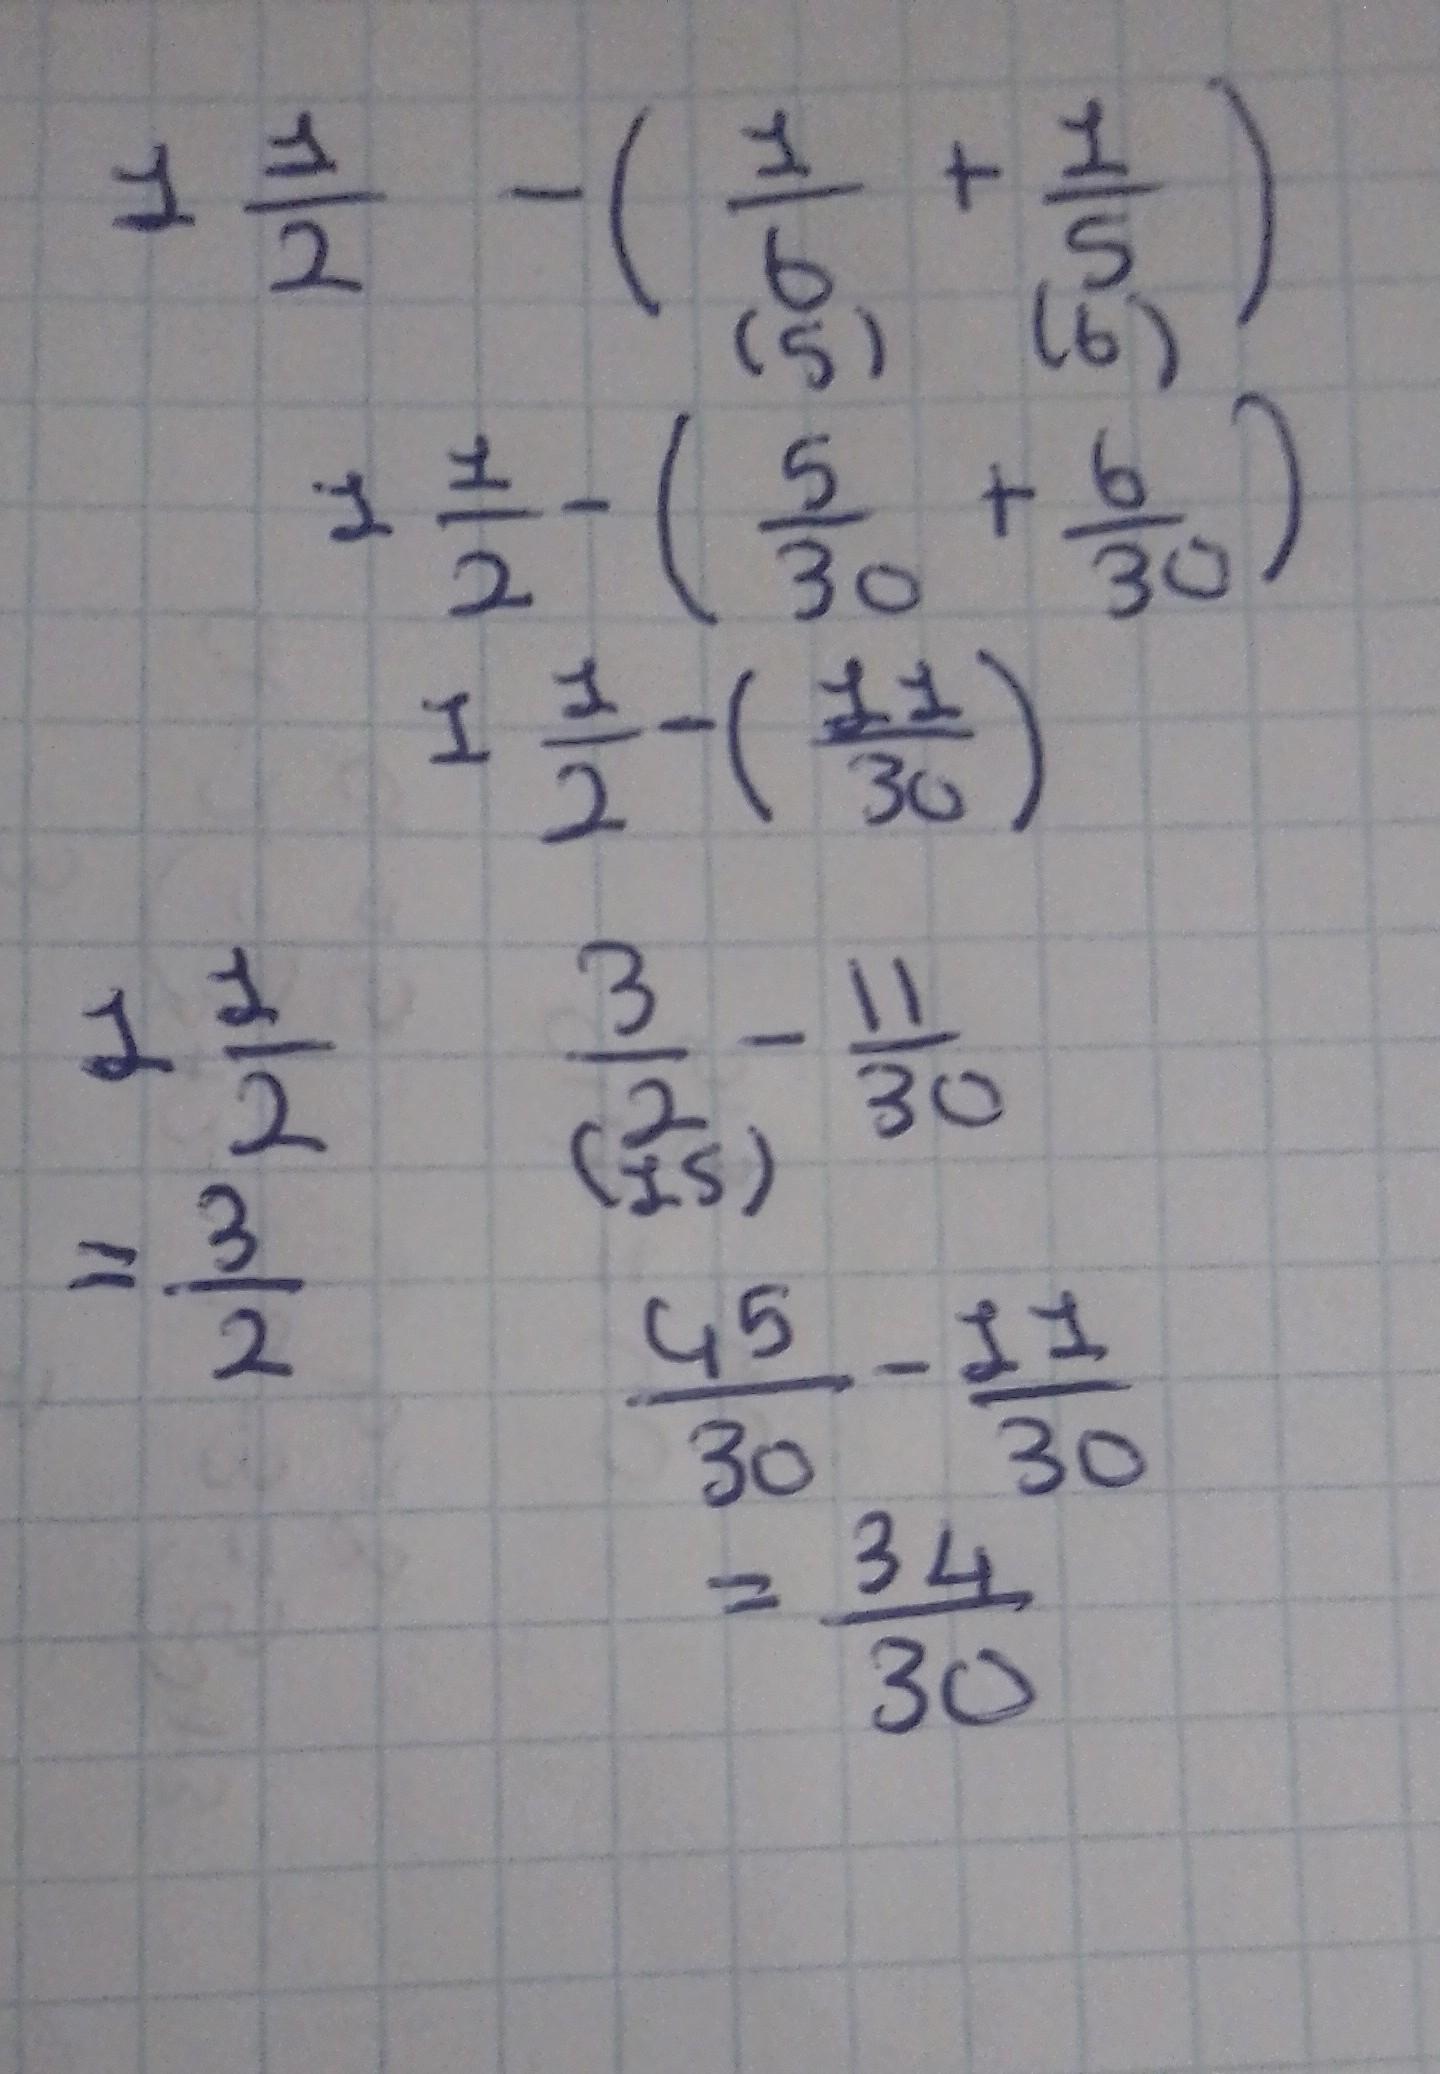 1 1/2 - ( 1/6 + 1/5 )
(5) (6)
1 1/2 - ( 5/30 + 6/30 )
1 1/2 - ( 11/30 )
1 1/2 3/2 - 11/30
(15)
= 3/2
45/30 - 11/30
= 34/30